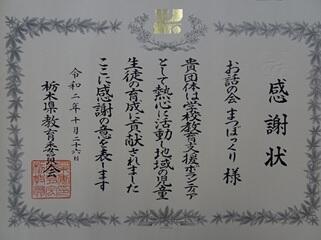 感謝状
お話の会 まつぼっくり 様
貴団体は学校教育支援ボランティア
として熱心に活動し地域の児童
生徒の育成に貢献されました
ここに感謝の意を表します
令和二年十月二十六日
栃木県教育委員会